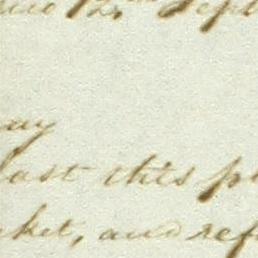 12, Sept
ay
last this p
ket, and ref